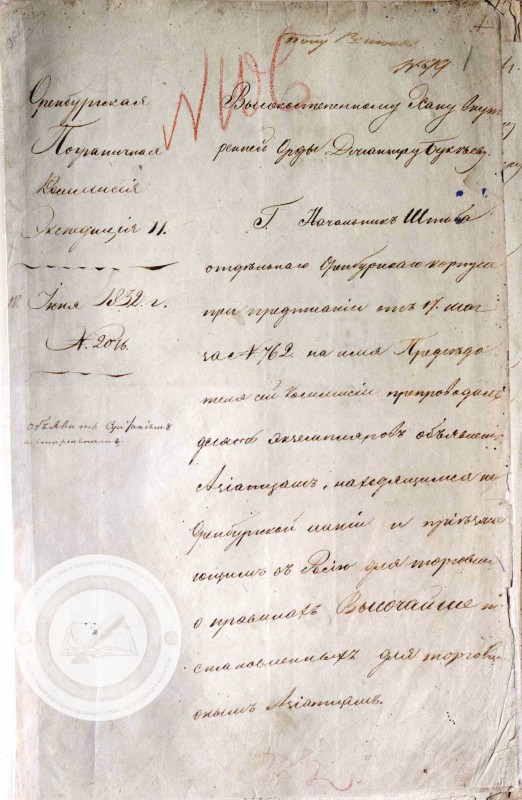 № 79
Оренбургская
Пограничная
Коммисія
Экспедиція II.
18. Іюня 1832. г.
№. 2016.
объявить
Высокостепенному Хану Внут
ренней Орды Джангиру Букееву.
Г. Начальникъ Штаба
отдѣльнаго Оренбургскаго корпуса
при предписаніи отъ 17. мая
за № 762. на имя Предсѣда
теля сей Коммисіи препроводилъ
экземпляровъ объявленія
Азіатцамъ, находящимся на
Оренбургской линіи и пріѣзжа
ющимъ въ Россію для торговли
о правилахъ Высочайше по
становленныхъ для торгов
Азіатцамъ.